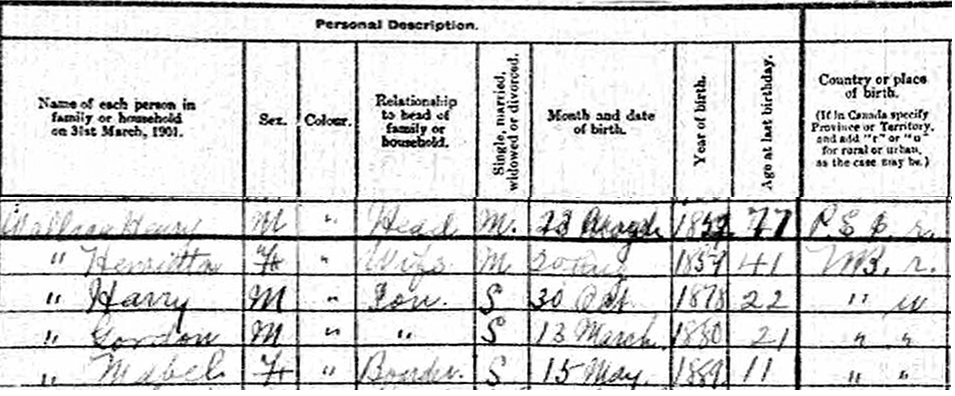 Personal Description.
Name of each person in family or household on 31st March, 1901.
Sex.
Colour.
Relationship to head of family or household.
Single, married, widowed or divorced.
Month and date of birth.
Year of birth.
Age at last birthday.
Country or place of birth.
(If in Canada specify Province or Territory, and add "r" or "u" for rural or urban, as the case may be.)
Wallace Henry M " Head M. 23 77 r.
" Henrietta F " Wife M 20 1859 41 N.B. r.
" Harry M " Son. S 30 Oct 1878 22 " u
" Gordon M " " S 13 March 1880 21 " "
" Mabel F " Boarder. S 15 May. 1889 11 " "